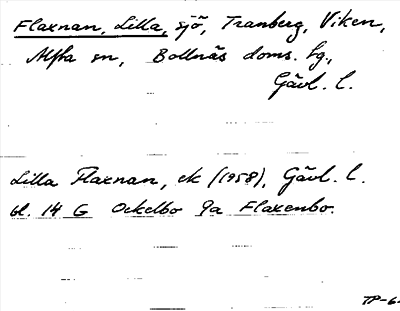 Flaxnan, Lilla, sjö, Tranberg, Viken,
Alfta sn, Bollnäs doms. hg.,
Gävl. l.
Lilla Flaxnan, ek (1958), Gävl. l.
bl. 14 G Ockelbo 9a Flaxenbo.
TP-6-